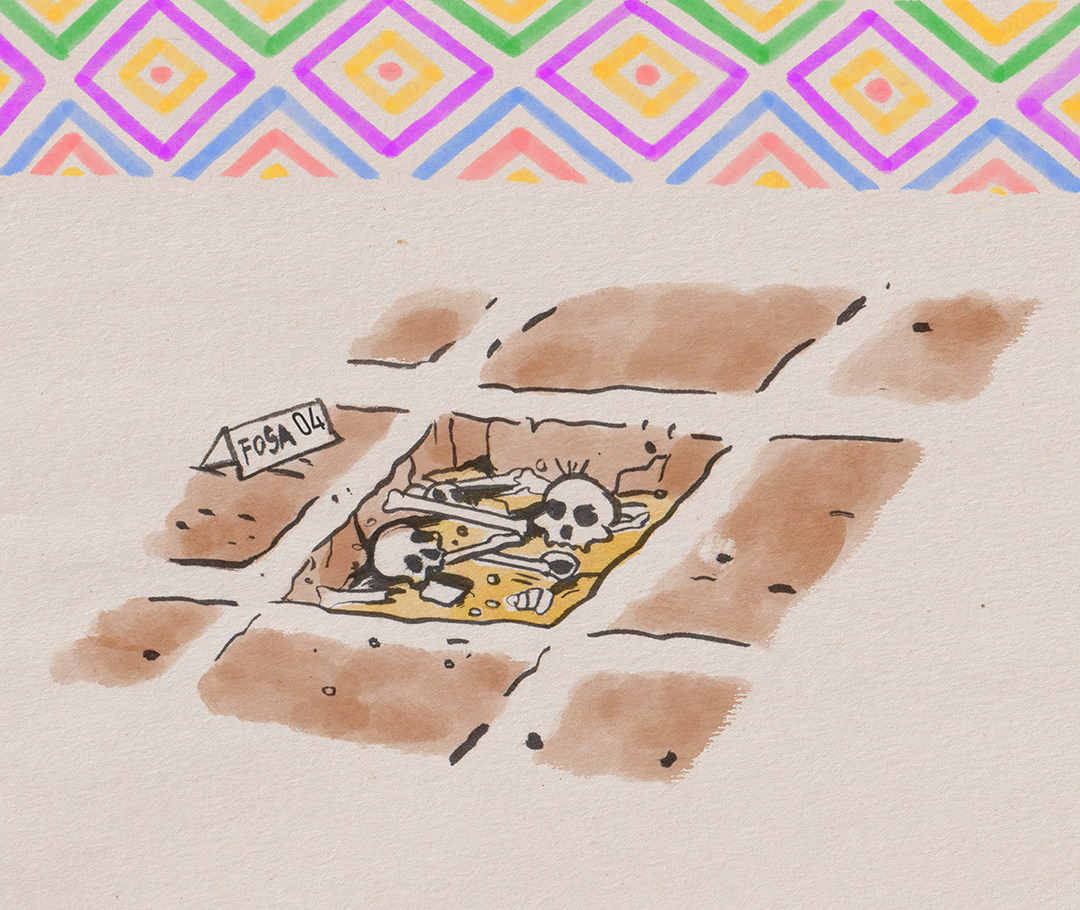 FOSA 04